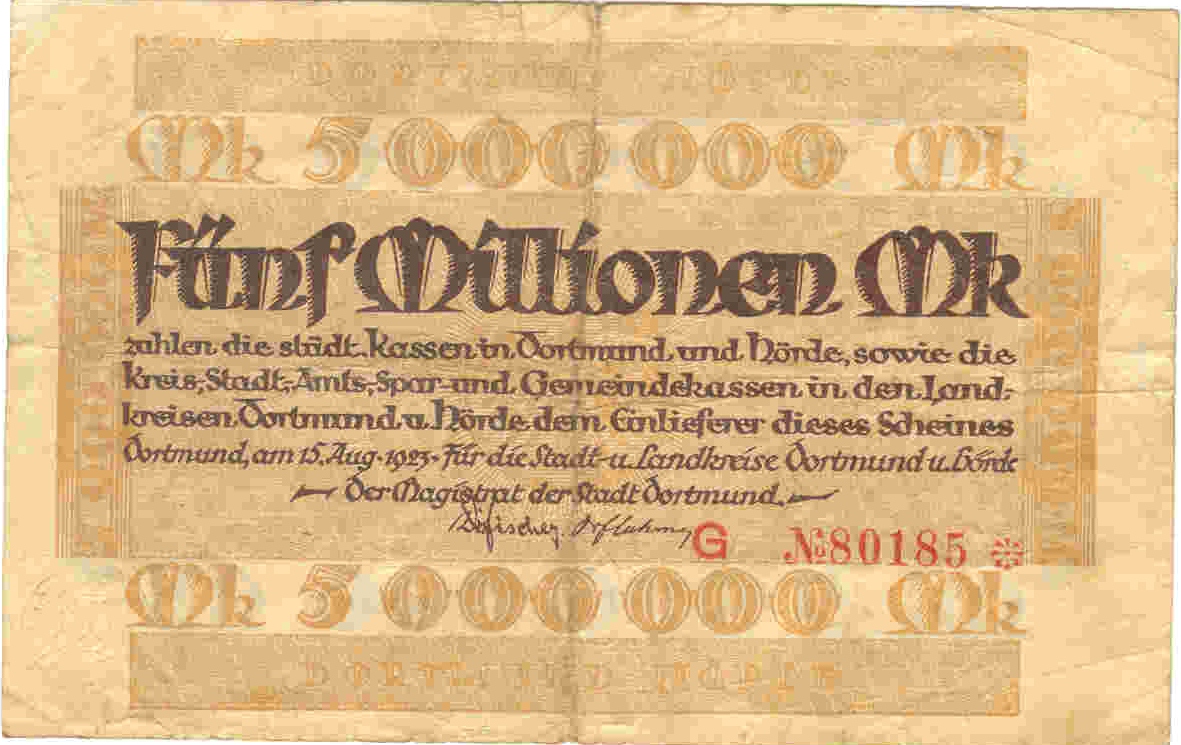 DORTMUND HÖRDE
Mk 5000000 Mk
Fünf Millionen Mk
zahlen die städt. Kassen in Dortmund und Hörde, sowie die
Kreis-, Stadt-, Amts-, Spar- und Gemeindekassen in den Land-
kreisen Dortmund u. Hörde dem Einlieferer dieses Scheines
Dortmund, am 15. Aug. 1923. Für die Stadt- u. Landkreise Dortmund u. Hörde
Der Magistrat der Stadt Dortmund.
G №80185
Mk 5000000 Mk
DORTMUND HÖRDE